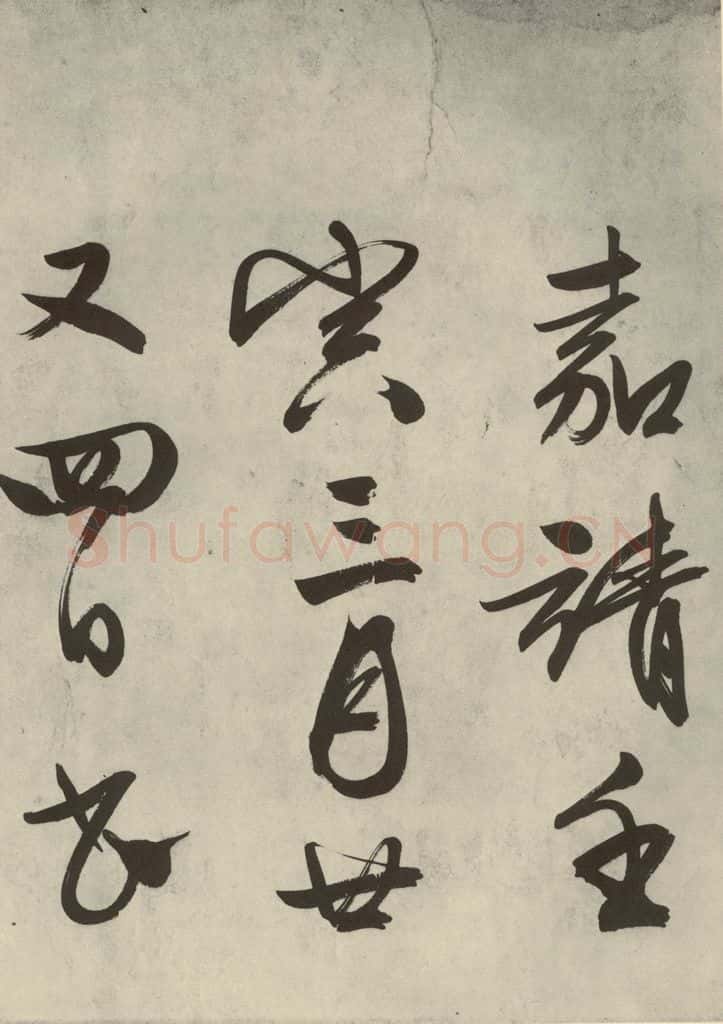 嘉靖壬
寅三月廿
又四日書
Shufawang.CN